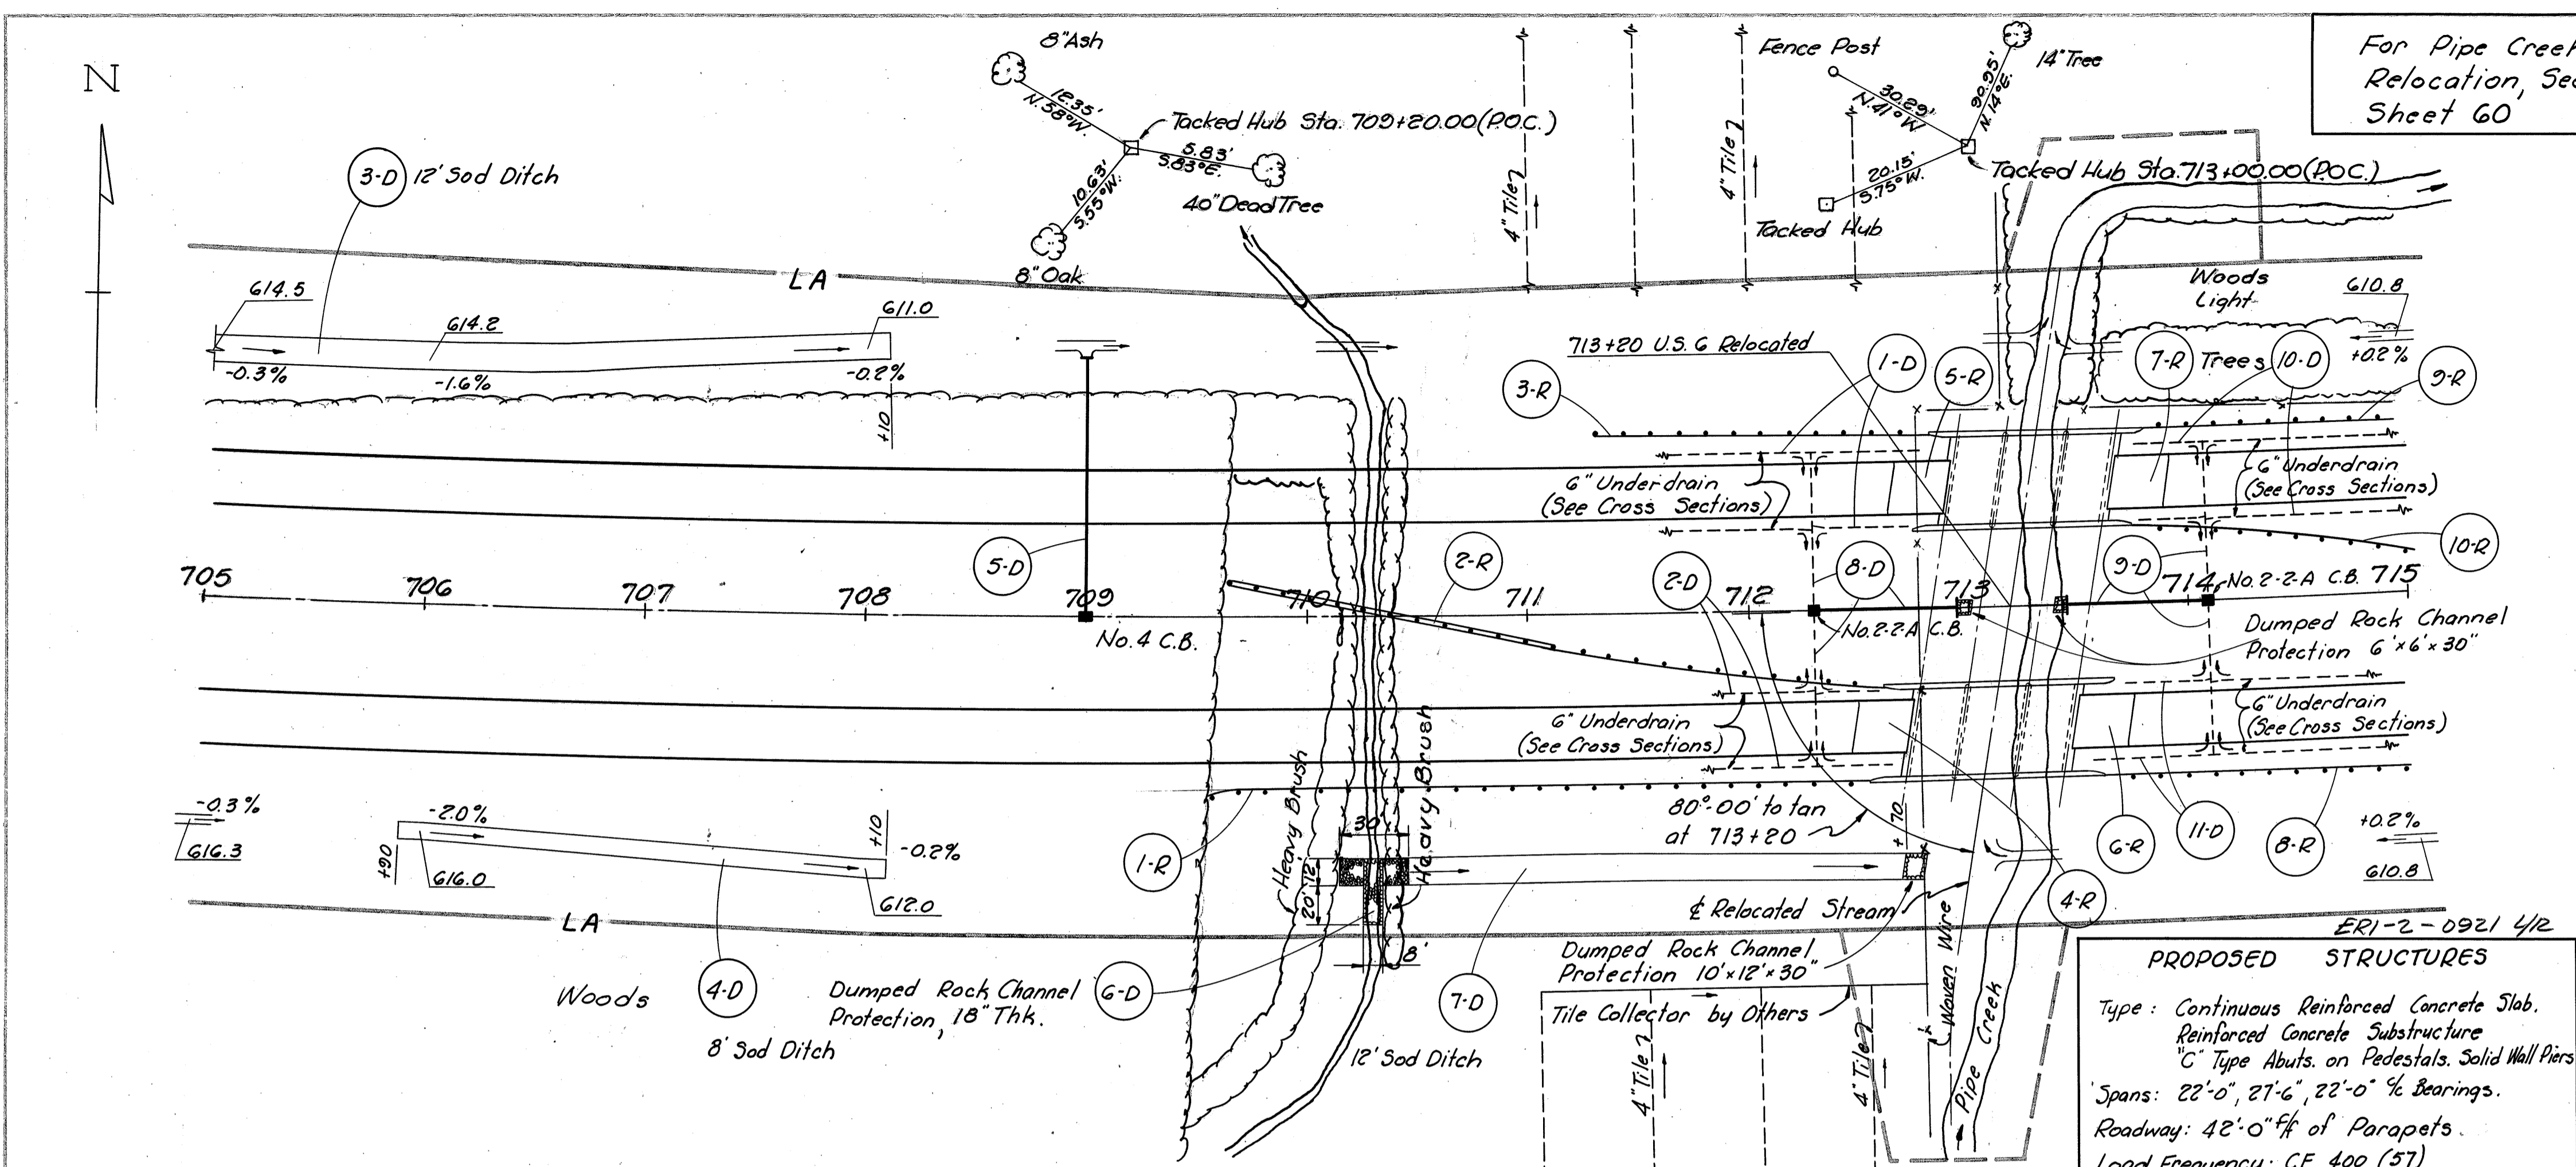 N
8" Ash
12.35'
N.58°W.
Tacked Hub Sta. 709+20.00 (P.O.C.)
5.83'
S.83°E.
10.63'
S.55°W.
40" Dead Tree
8" Oak
Fence Post
14" Tree
30.29'
N.41°W
90.95'
N.14°E.
20.15'
S.75°W.
Tacked Hub Sta. 713+00.00 (P.O.C.)
Tacked Hub
4" Tile
4" Tile
For Pipe Creek
Relocation, See
Sheet 60
3-D
12' Sod Ditch
LA
614.5
614.2
611.0
-0.3%
-1.6%
-0.2%
+10
Woods
Light
610.8
+0.2%
713+20 U.S. 6 Relocated
1-D
5-R
7-R
Trees
10-D
9-R
3-R
6" Underdrain
(See Cross Sections)
6" Underdrain
(See Cross Sections)
5-D
2-R
2-D
8-D
9-D
10-R
705
706
707
708
709
710
711
712
713
714
715
No. 4 C.B.
No. 2-2-A C.B.
No. 2-2-A C.B.
Dumped Rock Channel
Protection 6'x6'x30"
6" Underdrain
(See Cross Sections)
6" Underdrain
(See Cross Sections)
-0.3%
616.3
-2.0%
+90
616.0
+10
-0.2%
612.0
1-R
Heavy Brush
Heavy Brush
30'
12'
20'
8'
80°-00' to tan
at 713+20
+70
6-R
11-D
8-R
+0.2%
610.8
4-R
℄ Relocated Stream
LA
Woods
4-D
8' Sod Ditch
Dumped Rock Channel
Protection, 18" Thk.
6-D
7-D
12' Sod Ditch
Dumped Rock Channel
Protection 10'x12'x30"
Tile Collector by Others
4" Tile
4" Tile
Woven Wire
Pipe Creek
ERI-2-0921 L/R
PROPOSED STRUCTURES
Type: Continuous Reinforced Concrete Slab.
Reinforced Concrete Substructure
"C" Type Abuts. on Pedestals. Solid Wall Piers
Spans: 22'-0", 27'-6", 22'-0" c/c Bearings.
Roadway: 42'-0" f/f of Parapets.
Load Frequency: CF 400 (57)